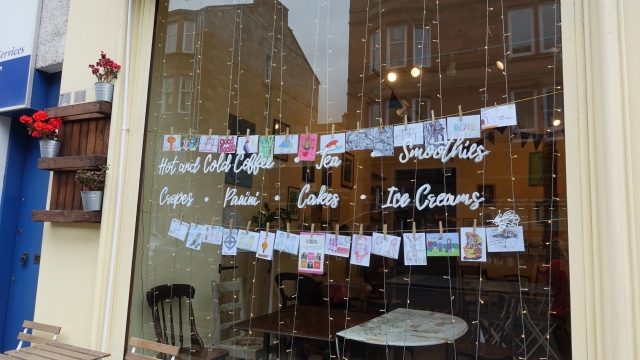 Services
Hot and Cold Coffee • Tea • Smoothies
Crepes • Panini • Cakes • Ice Creams